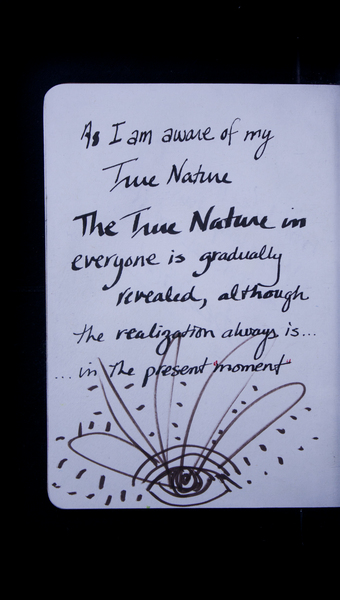 As I am aware of my
True Nature
The True Nature in
everyone is gradually
revealed, although
the realization always is...
...in the present "moment"